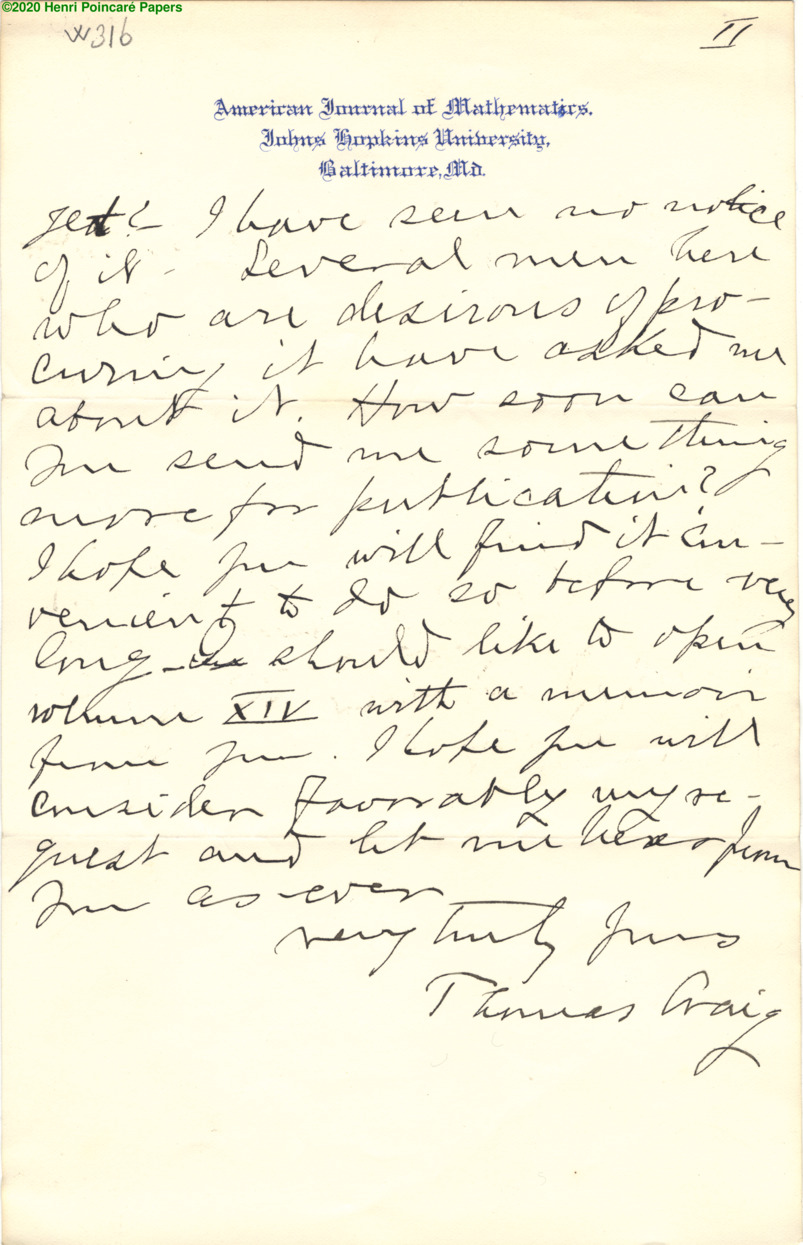 ©2020 Henri Poincaré Papers
W316
II
American Journal of Mathematics.
Johns Hopkins University,
Baltimore, Md.
yet? – I have seen no notice
of it – Several men here
who are desirous of pro-
curing it have asked me
about it. How soon can
you send me something
more for publication?
I hope you will find it con-
venient to do so before very
long – should like to open
volume XIV with a memoir
from you. I hope you will
consider favorably my re-
quest and let me hear from
you as ever
very truly yours
Thomas Craig